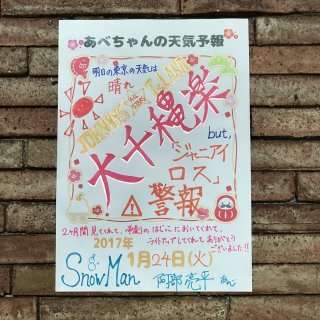 あべちゃんの天気予報
明日の東京の天気は
晴れ
JOHNNYS'
ALL STARS
ISLAND
大千穐楽
but,
「ジャニアイ
ロス」
警報
2ヶ月間見てくれて、帝劇のはじっこにおいてくれて、
ライトアップしてくれてありがとう
ございました!!
2017年
1月24日(火)
Snow Man
阿部亮平